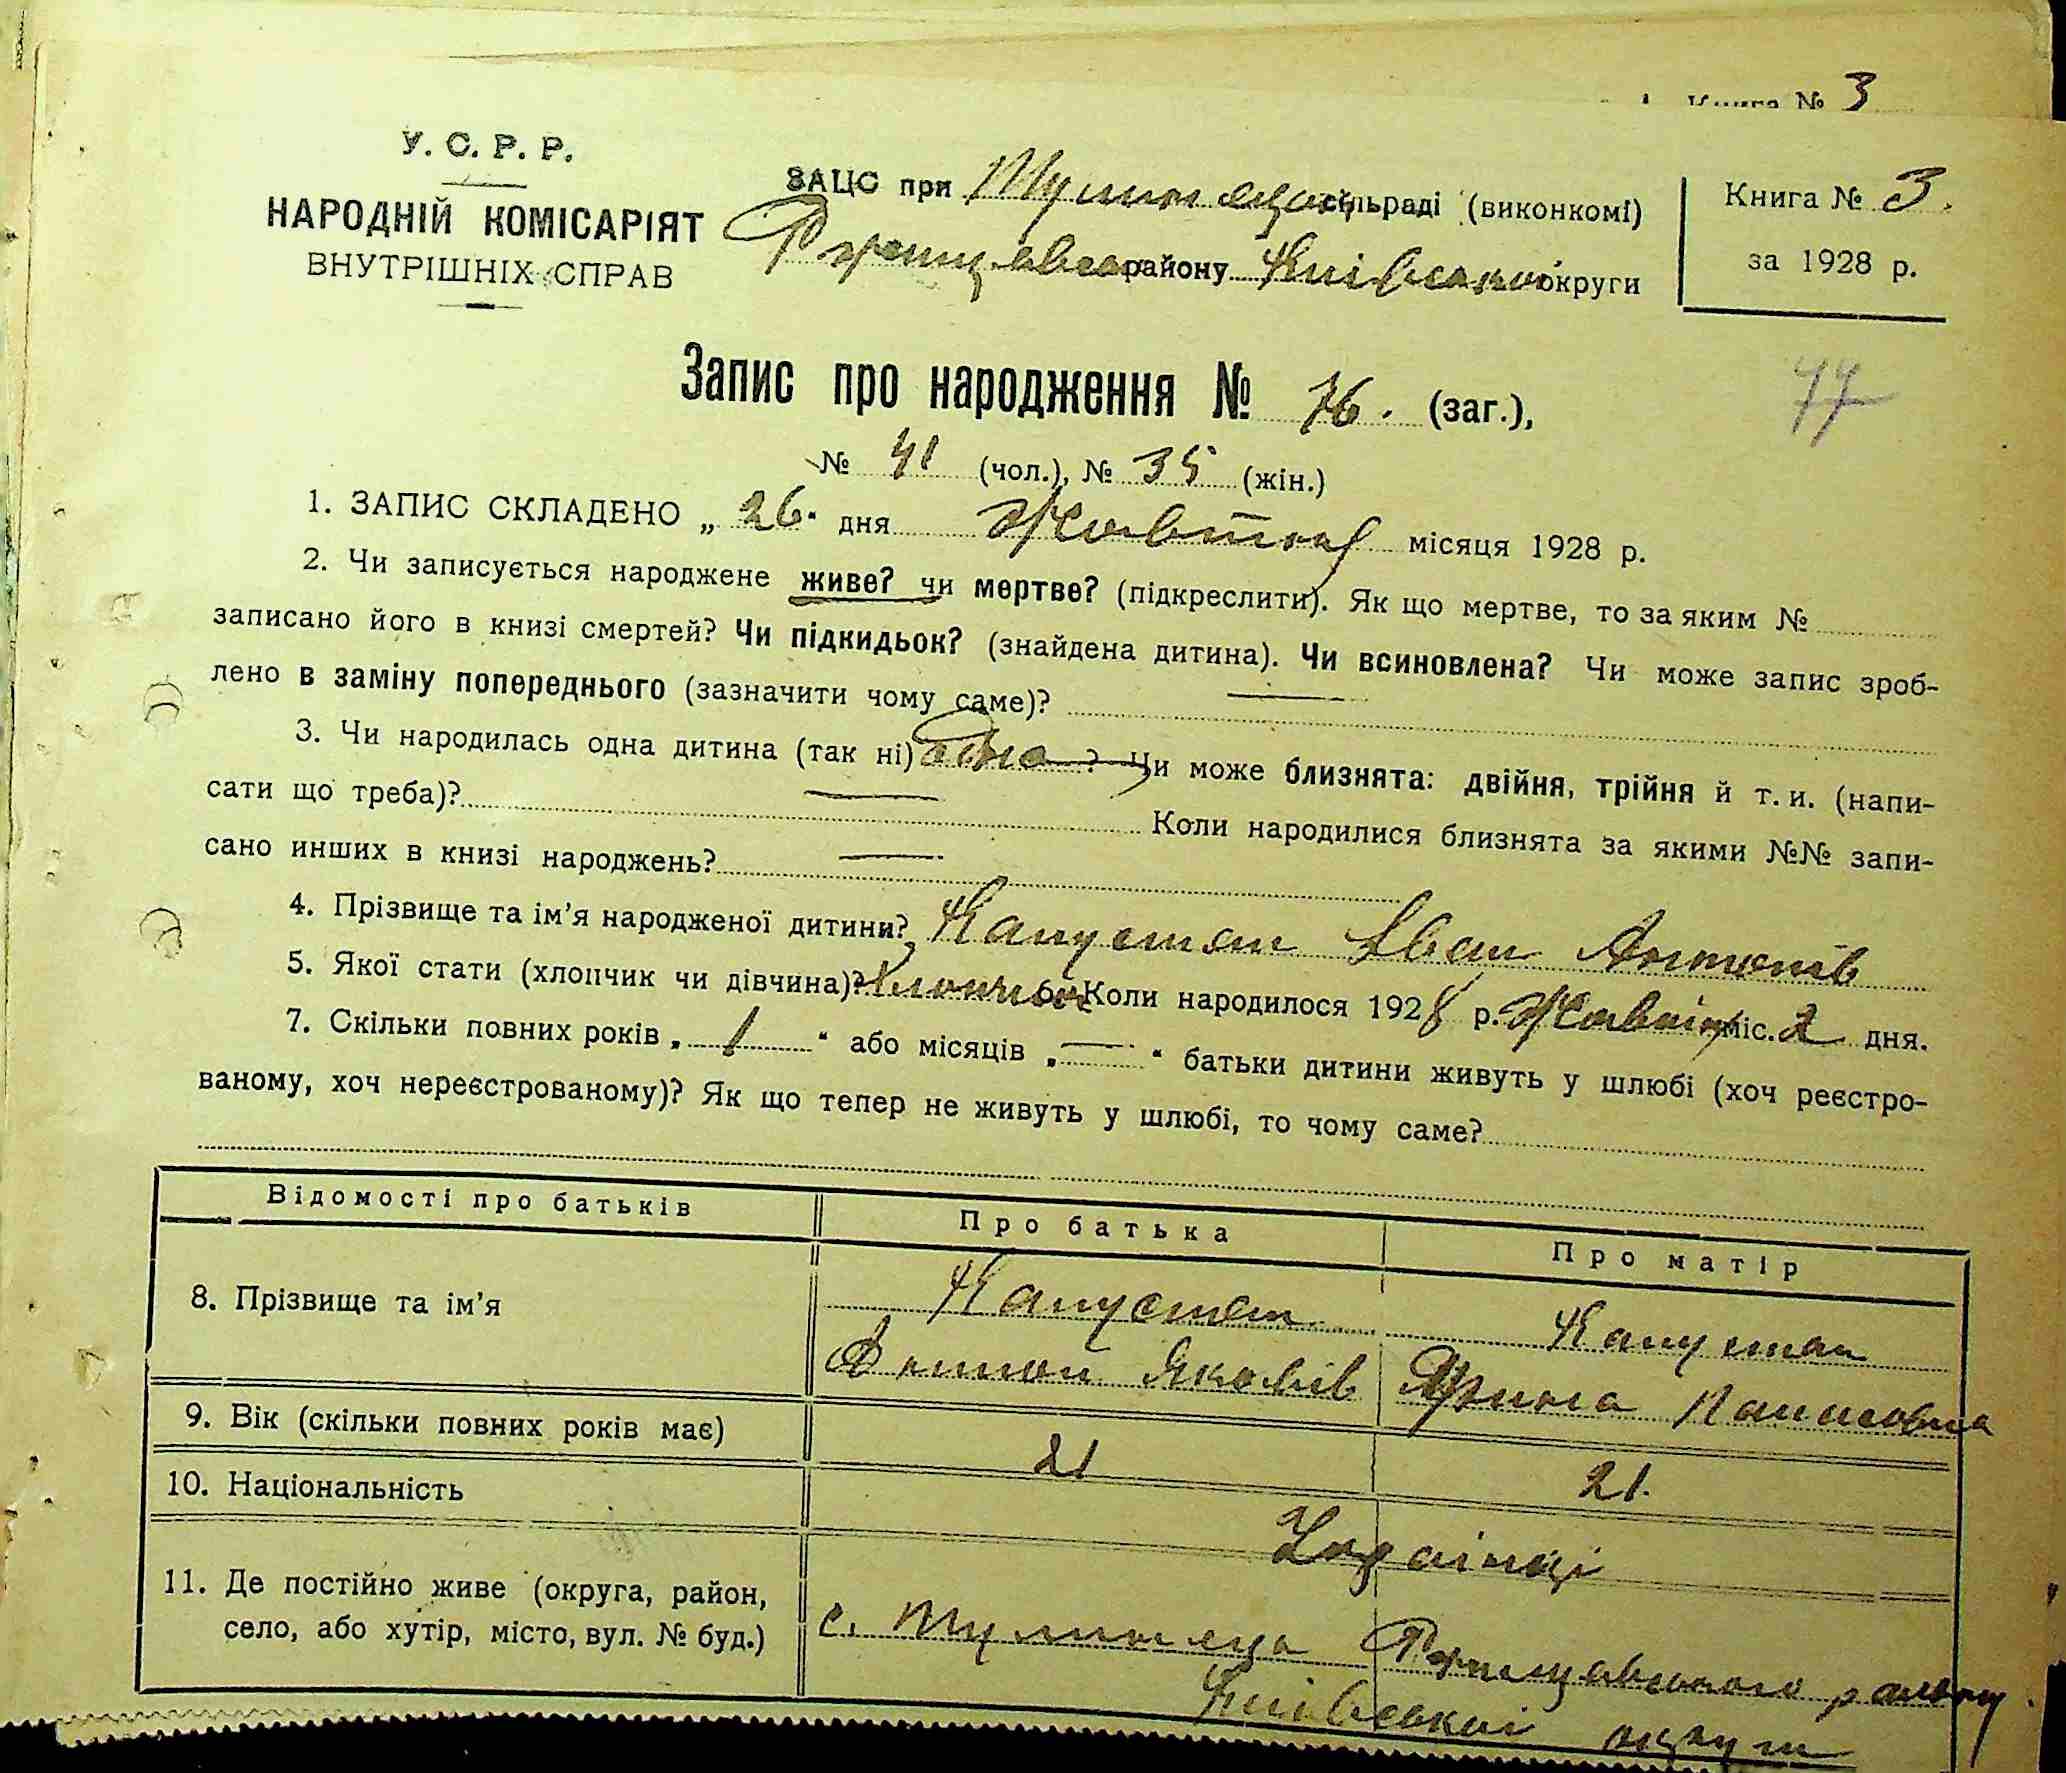 Книга № 3
У. С. Р. Р.
НАРОДНІЙ КОМІСАРІЯТ
ВНУТРІШНІХ СПРАВ
ЗАЦС при сільраді (виконкомі)
району Київської округи
Книга № 3.
за 1928 р.
77
Запис про народження № 76. (заг.),
№ 41 (чол.), № 35 (жін.)
1. ЗАПИС СКЛАДЕНО „ 26 " дня Жовтня місяця 1928 р.
2. Чи записується народжене живе? чи мертве? (підкреслити). Як що мертве, то за яким №
записано його в книзі смертей? Чи підкидьок? (знайдена дитина). Чи всиновлена? Чи може запис зроб-
лено в заміну попереднього (зазначити чому саме)? —
3. Чи народилась одна дитина (так ні) одна ? Чи може близнята: двійня, трійня й т. и. (напи-
сати що треба)? — Коли народилися близнята за якими №№ запи-
сано инших в книзі народжень? —
4. Прізвище та ім'я народженої дитини? Капустян Іван Антонів
5. Якої стати (хлопчик чи дівчина)? Хлопчик 6. Коли народилося 1928 р. Жовтня міс. 2 дня.
7. Скільки повних років „ 1 " або місяців „ — " батьки дитини живуть у шлюбі (хоч реєстро-
ваному, хоч нереєстрованому)? Як що тепер не живуть у шлюбі, то чому саме?
Відомості про батьків Про батька Про матір
8. Прізвище та ім'я Капустян Капустян
Антон Яковів
9. Вік (скільки повних років має) 21 21.
10. Національність Українці
11. Де постійно живе (округа, район,
село, або хутір, місто, вул. № буд.) с. Ржищівського району
Київської округи